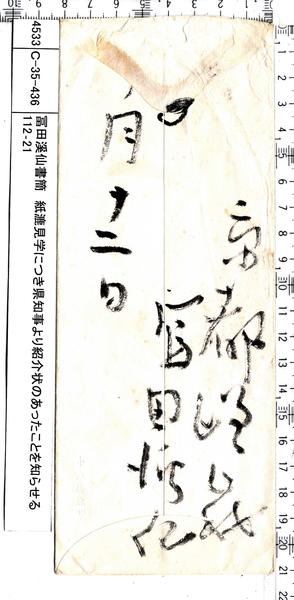 4533 C-35-436
冨田溪仙書簡 紙漉見学につき県知事より紹介状のあったことを知らせる
112-21
京都嵯峨
冨田溪仙
月十二日